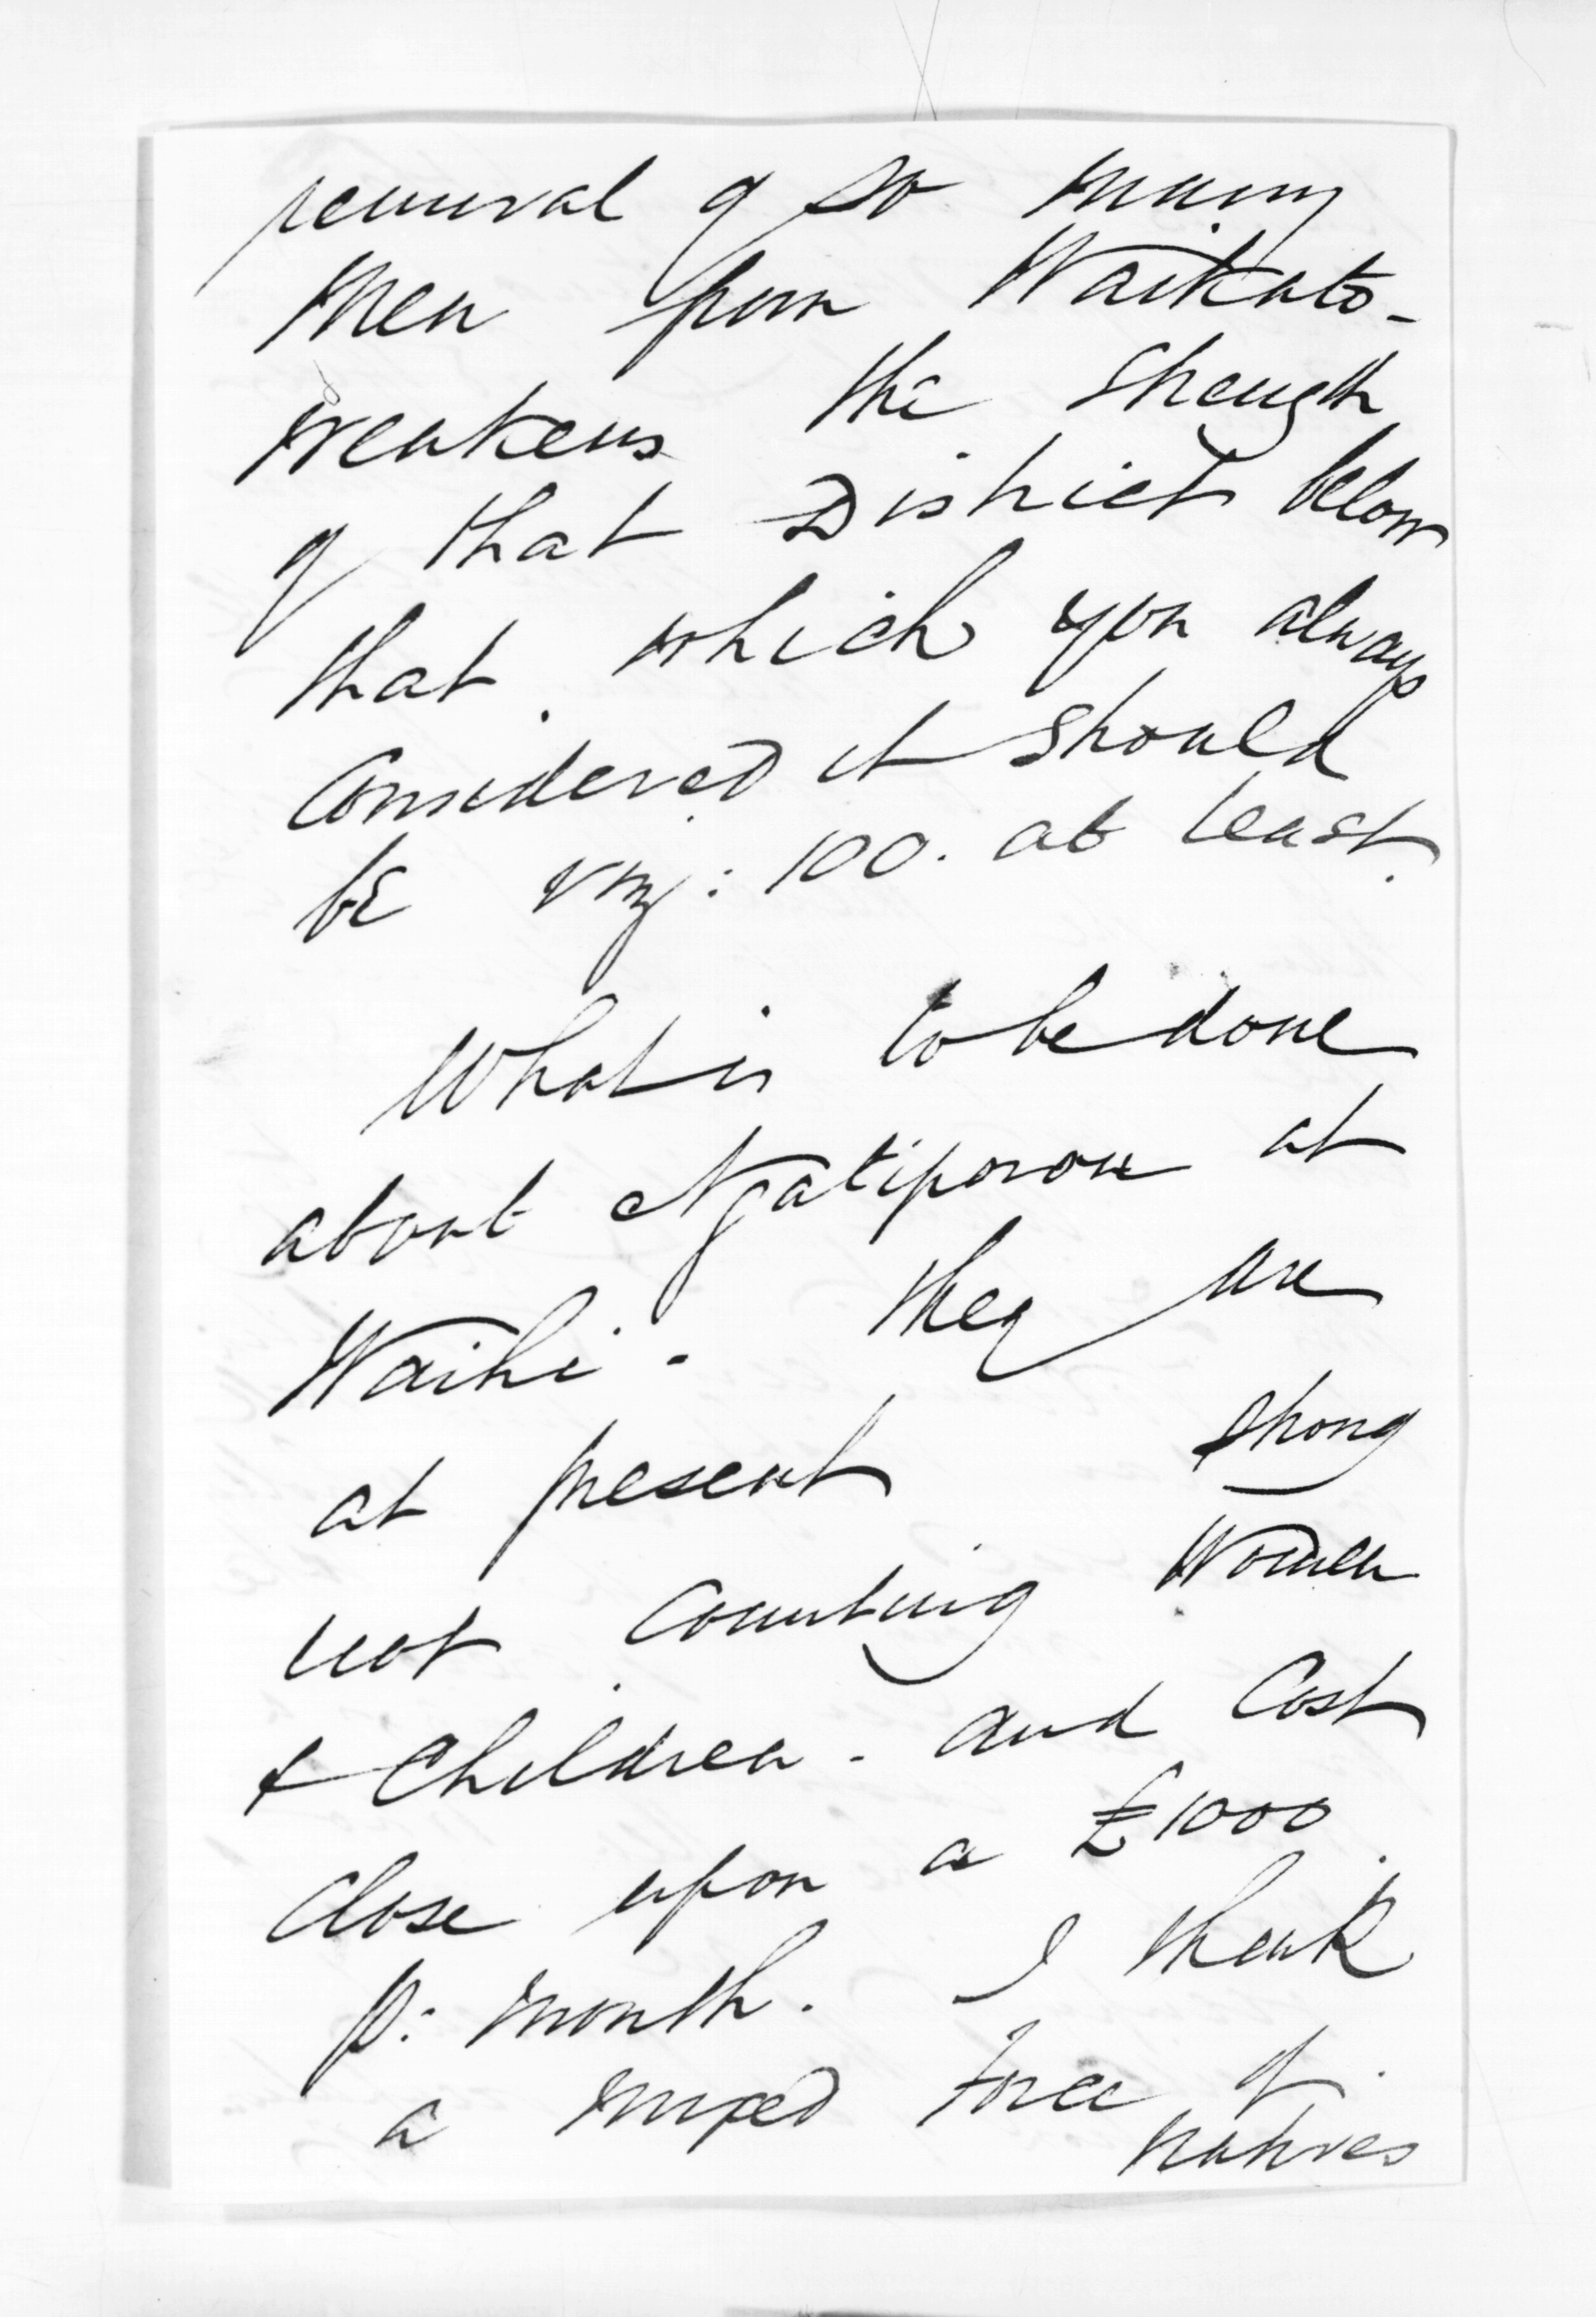 removal of so many
men from Waikato -
weakens the strength
of that District below
that which you always
Considered it should
be viz: 100. at least.
What is to be done
about Ngatiporou at
Waihi - they are
at present strong
not counting Women
& Children - and Cost
close upon a £1000
p: month. I think
a mixed force of
natives